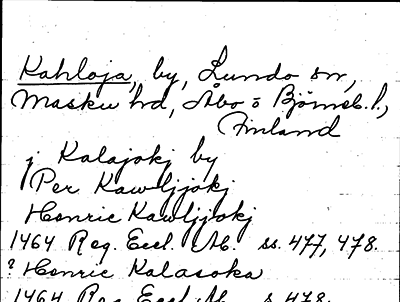 Kahloja, by, Lundo sn,
Masku hd, Åbo o Björneb. l.,
Finland
j Kalajokj by
Per Kawljjokj
Henric Kawljjokj
1464 Reg. Eccl. Ab. ss. 477, 478.
? Henric Kalasoka
1464 Reg Eccl. Ab. s. 478.